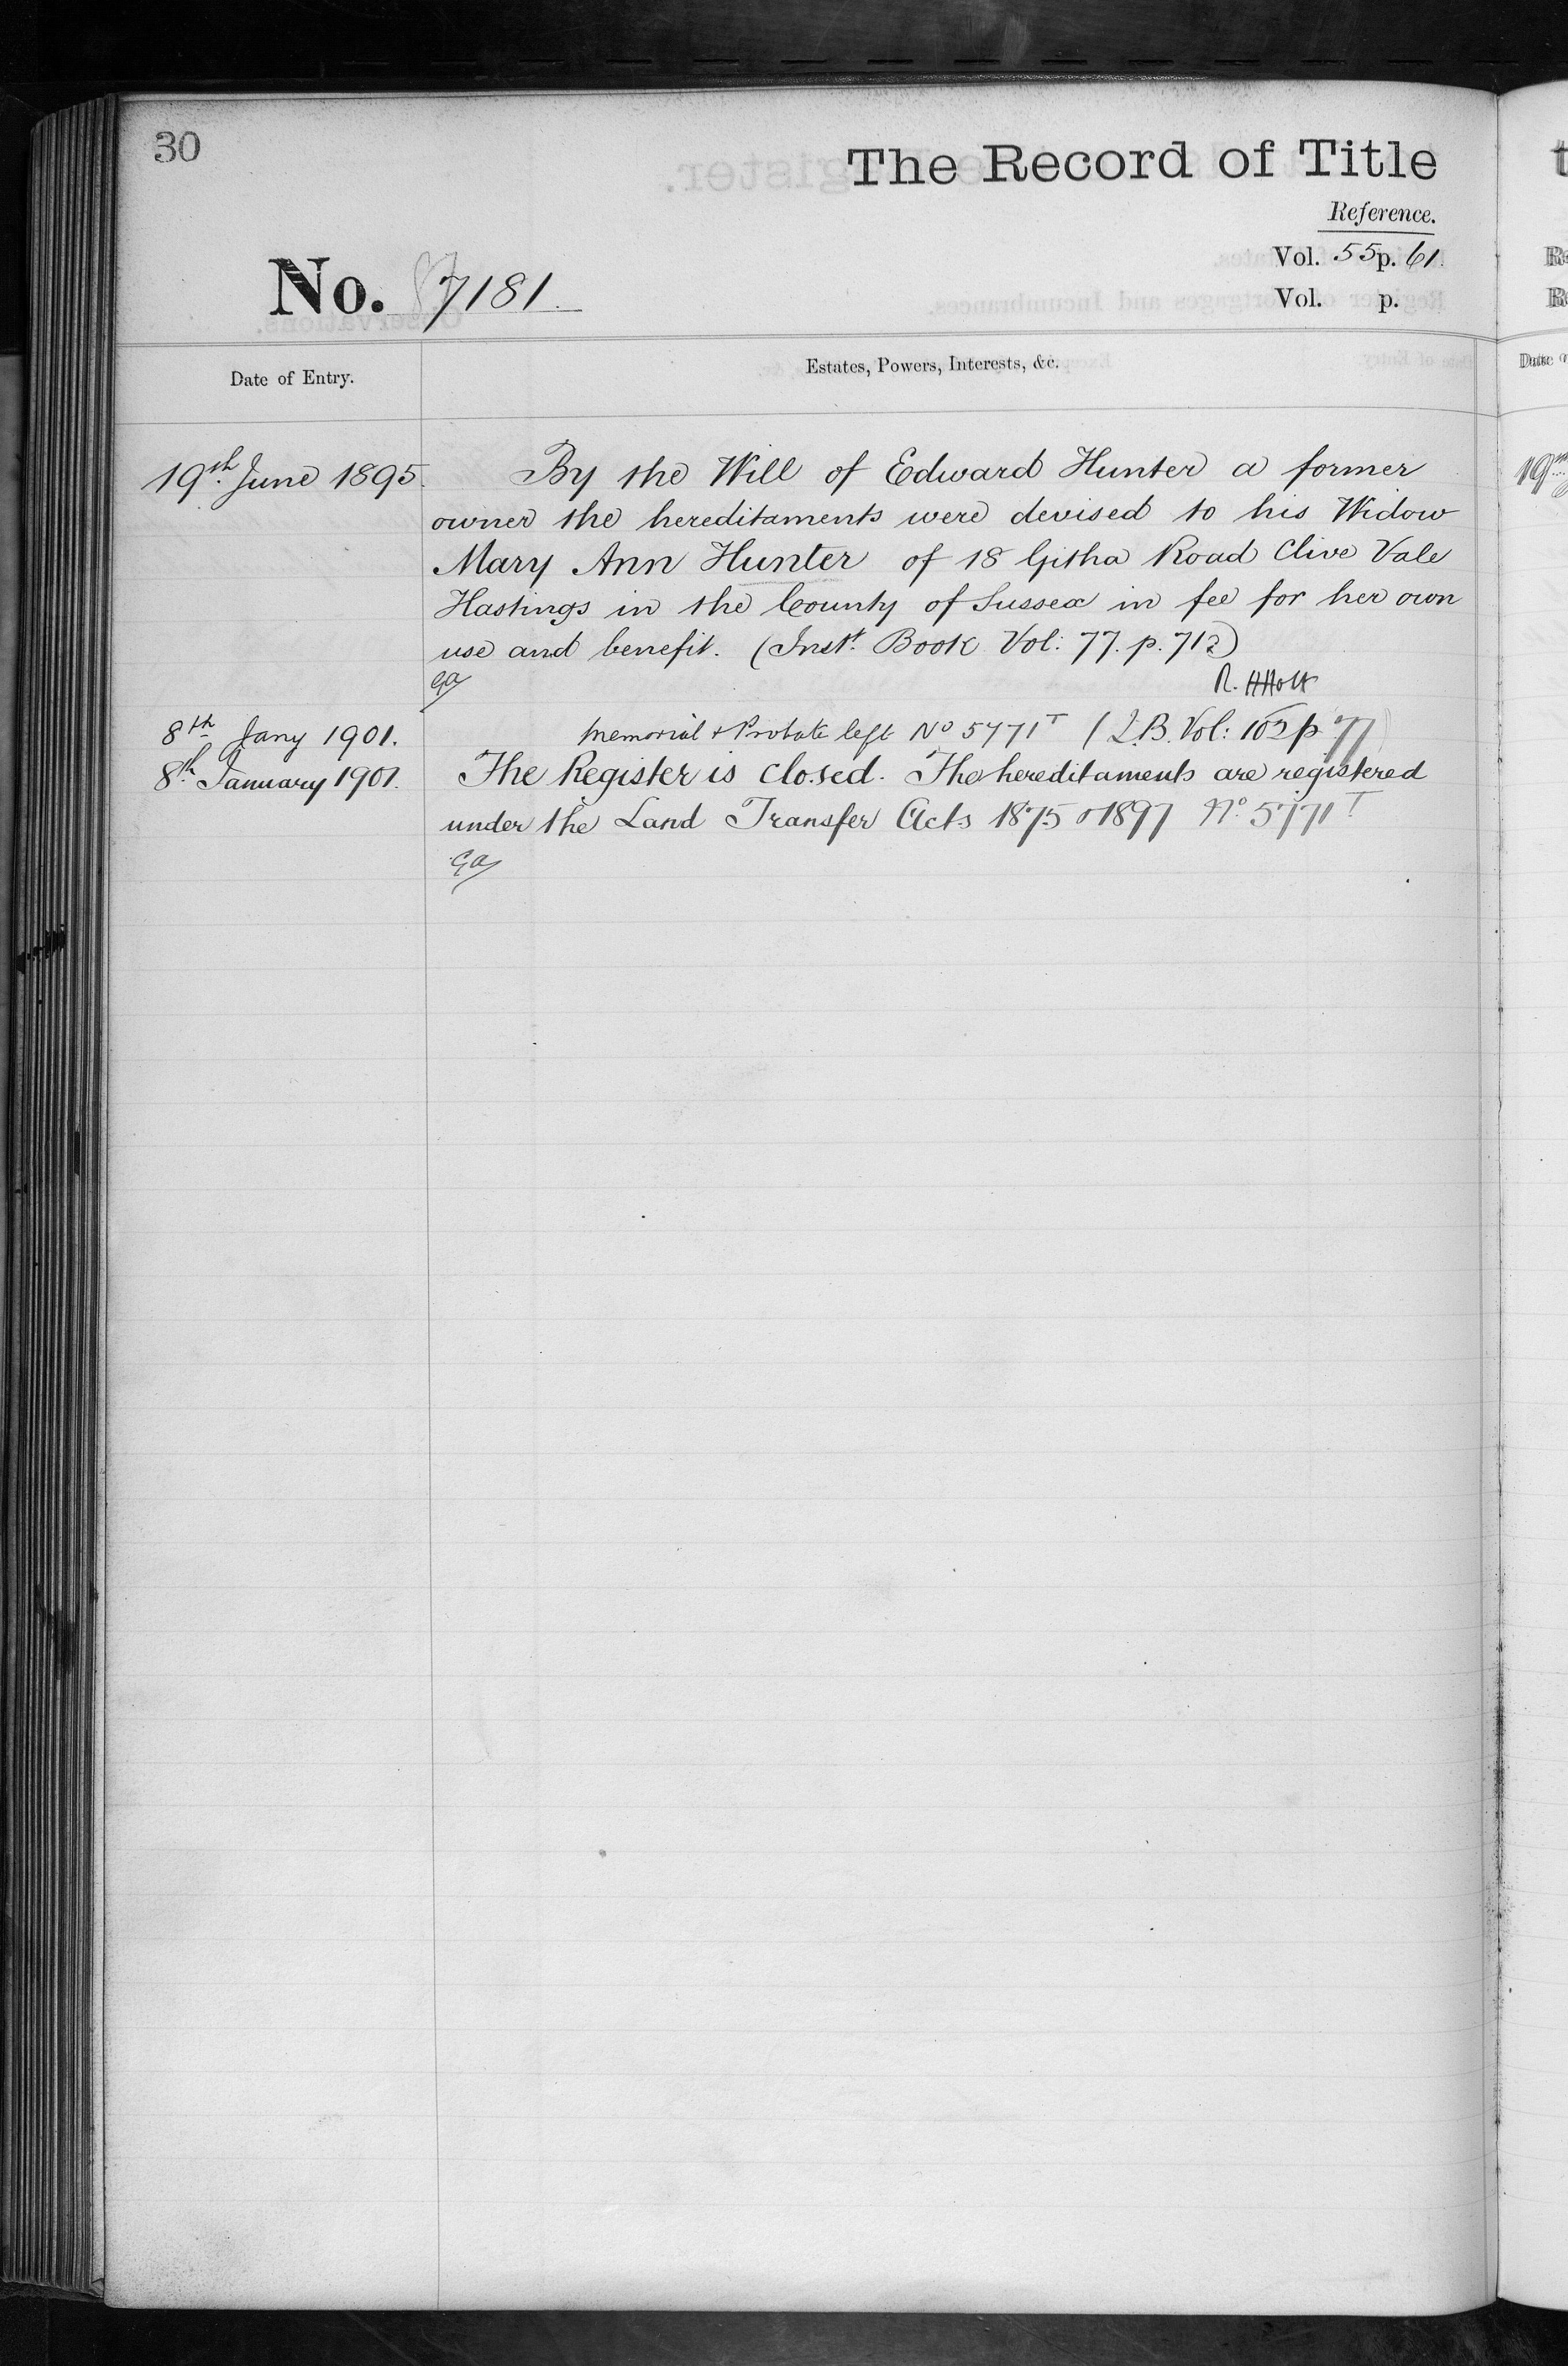 30
The Record of Title
Reference.
Vol. 55 p. 61.
No. 7181.
Vol. p.
Date of Entry.
Estates, Powers, Interests, &c.
19th. June 1895.
By the Will of Edward Hunter a former
owner the hereditaments were devised to his Widow
Mary Ann Hunter of 18 Githa Road Clive Vale
Hastings in the County of Sussex in fee for her own
use and benefit. (Inst. Book Vol: 77. p. 712)
GA
R. H Holt
8th Jany 1901.
Memorial & Probate left No 5771T (I.B. Vol: 102 p 77)
8th January 1901.
The Register is closed. The hereditaments are registered
under the Land Transfer Acts 1875 & 1897 No. 5771T
GA